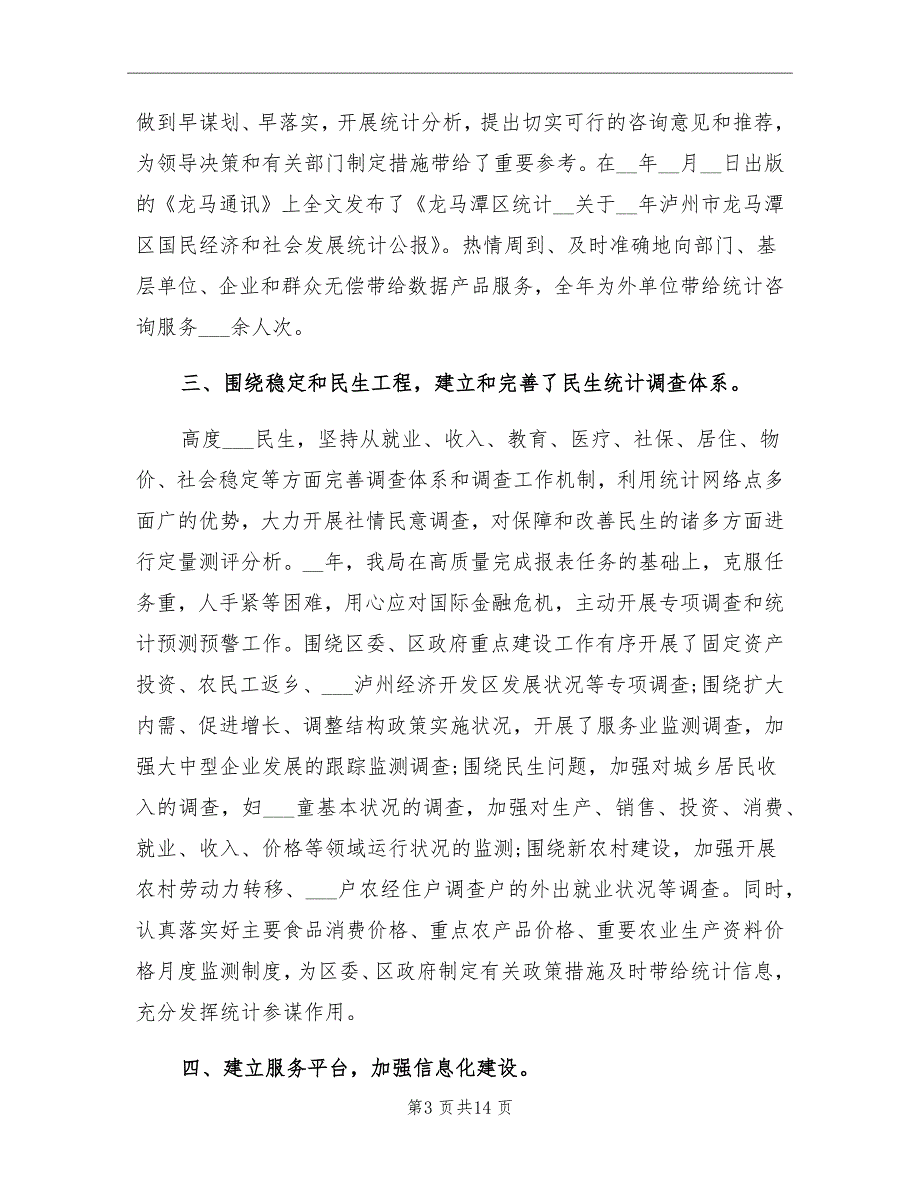 做到早谋划、早落实，开展统计分析，提出切实可行的咨询意见和推荐，
为领导决策和有关部门制定措施带给了重要参考。在__年__月__日出版
的《龙马通讯》上全文发布了《龙马潭区统计__关于__年泸州市龙马潭
区国民经济和社会发展统计公报》。热情周到、及时准确地向部门、基
层单位、企业和群众无偿带给数据产品服务，全年为外单位带给统计咨
询服务___余人次。
三、围绕稳定和民生工程，建立和完善了民生统计调查体系。
高度___民生，坚持从就业、收入、教育、医疗、社保、居住、物
价、社会稳定等方面完善调查体系和调查工作机制，利用统计网络点多
面广的优势，大力开展社情民意调查，对保障和改善民生的诸多方面进
行定量测评分析。__年，我局在高质量完成报表任务的基础上，克服任
务重，人手紧等困难，用心应对国际金融危机，主动开展专项调查和统
计预测预警工作。围绕区委、区政府重点建设工作有序开展了固定资产
投资、农民工返乡、___泸州经济开发区发展状况等专项调查;围绕扩大
内需、促进增长、调整结构政策实施状况，开展了服务业监测调查，加
强大中型企业发展的跟踪监测调查;围绕民生问题，加强对城乡居民收
入的调查，妇___童基本状况的调查，加强对生产、销售、投资、消费、
就业、收入、价格等领域运行状况的监测;围绕新农村建设，加强开展
农村劳动力转移、___户农经住户调查户的外出就业状况等调查。同时，
认真落实好主要食品消费价格、重点农产品价格、重要农业生产资料价
格月度监测制度，为区委、区政府制定有关政策措施及时带给统计信息，
充分发挥统计参谋作用。
四、建立服务平台，加强信息化建设。
第3 页共14 页